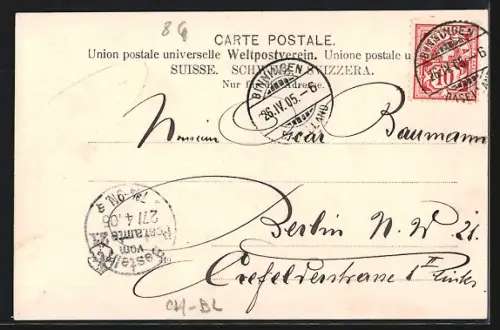 8G
CARTE POSTALE.
Union postale universelle Weltpostverein. Unione postale u
SUISSE. SCH VIZZERA.
Nur fü Adresse.
BINNINGEN
26.IV.05.–6
LAND
BINNINGEN
26.IV.05.–6
BASEL LAND
Monsieur Oscar Baumann
Berlin N. W. 21.
Crefelderstrasse 1 II Links
Bestellt
vom
Postamte 21
27/4.05
CH-BL